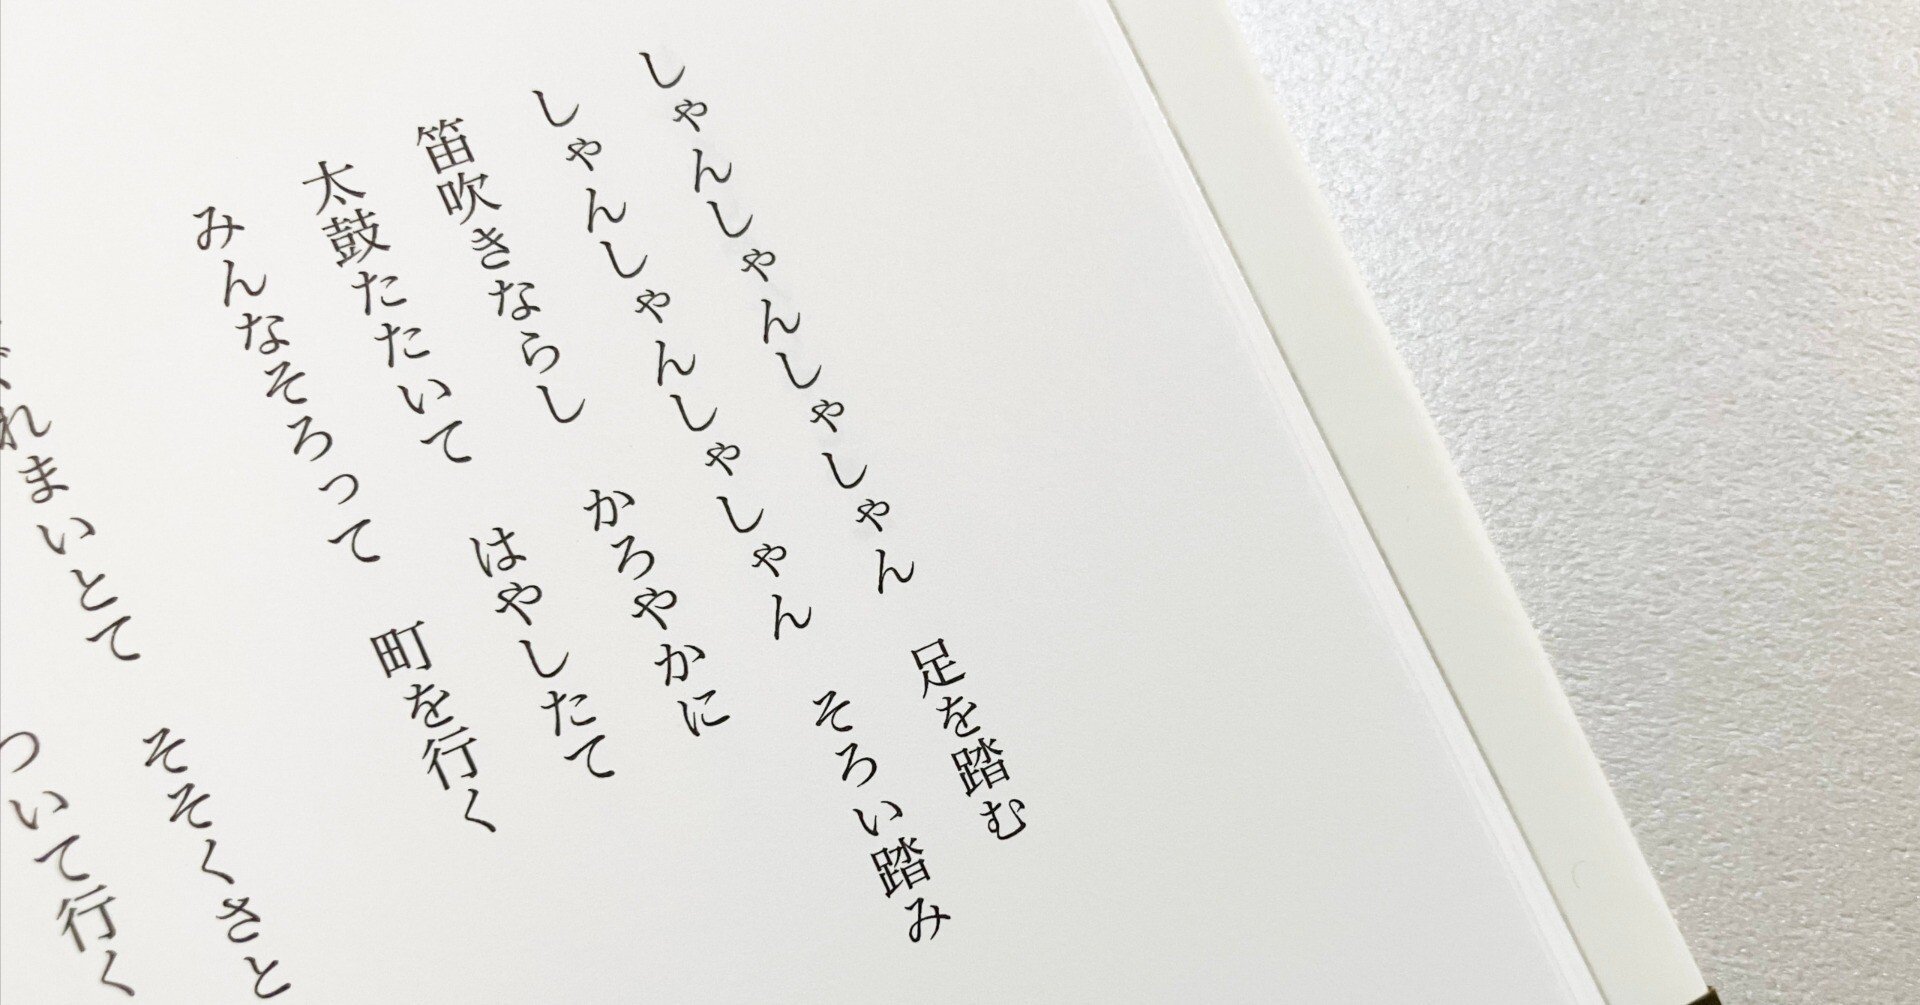 しゃんしゃんしゃしゃん　足を踏む
しゃんしゃんしゃしゃん　そろい踏み
笛吹きならし　かろやかに
太鼓たたいて　はやしたて
みんなそろって　町を行く
れまいとて　そそくさと
ついて行く